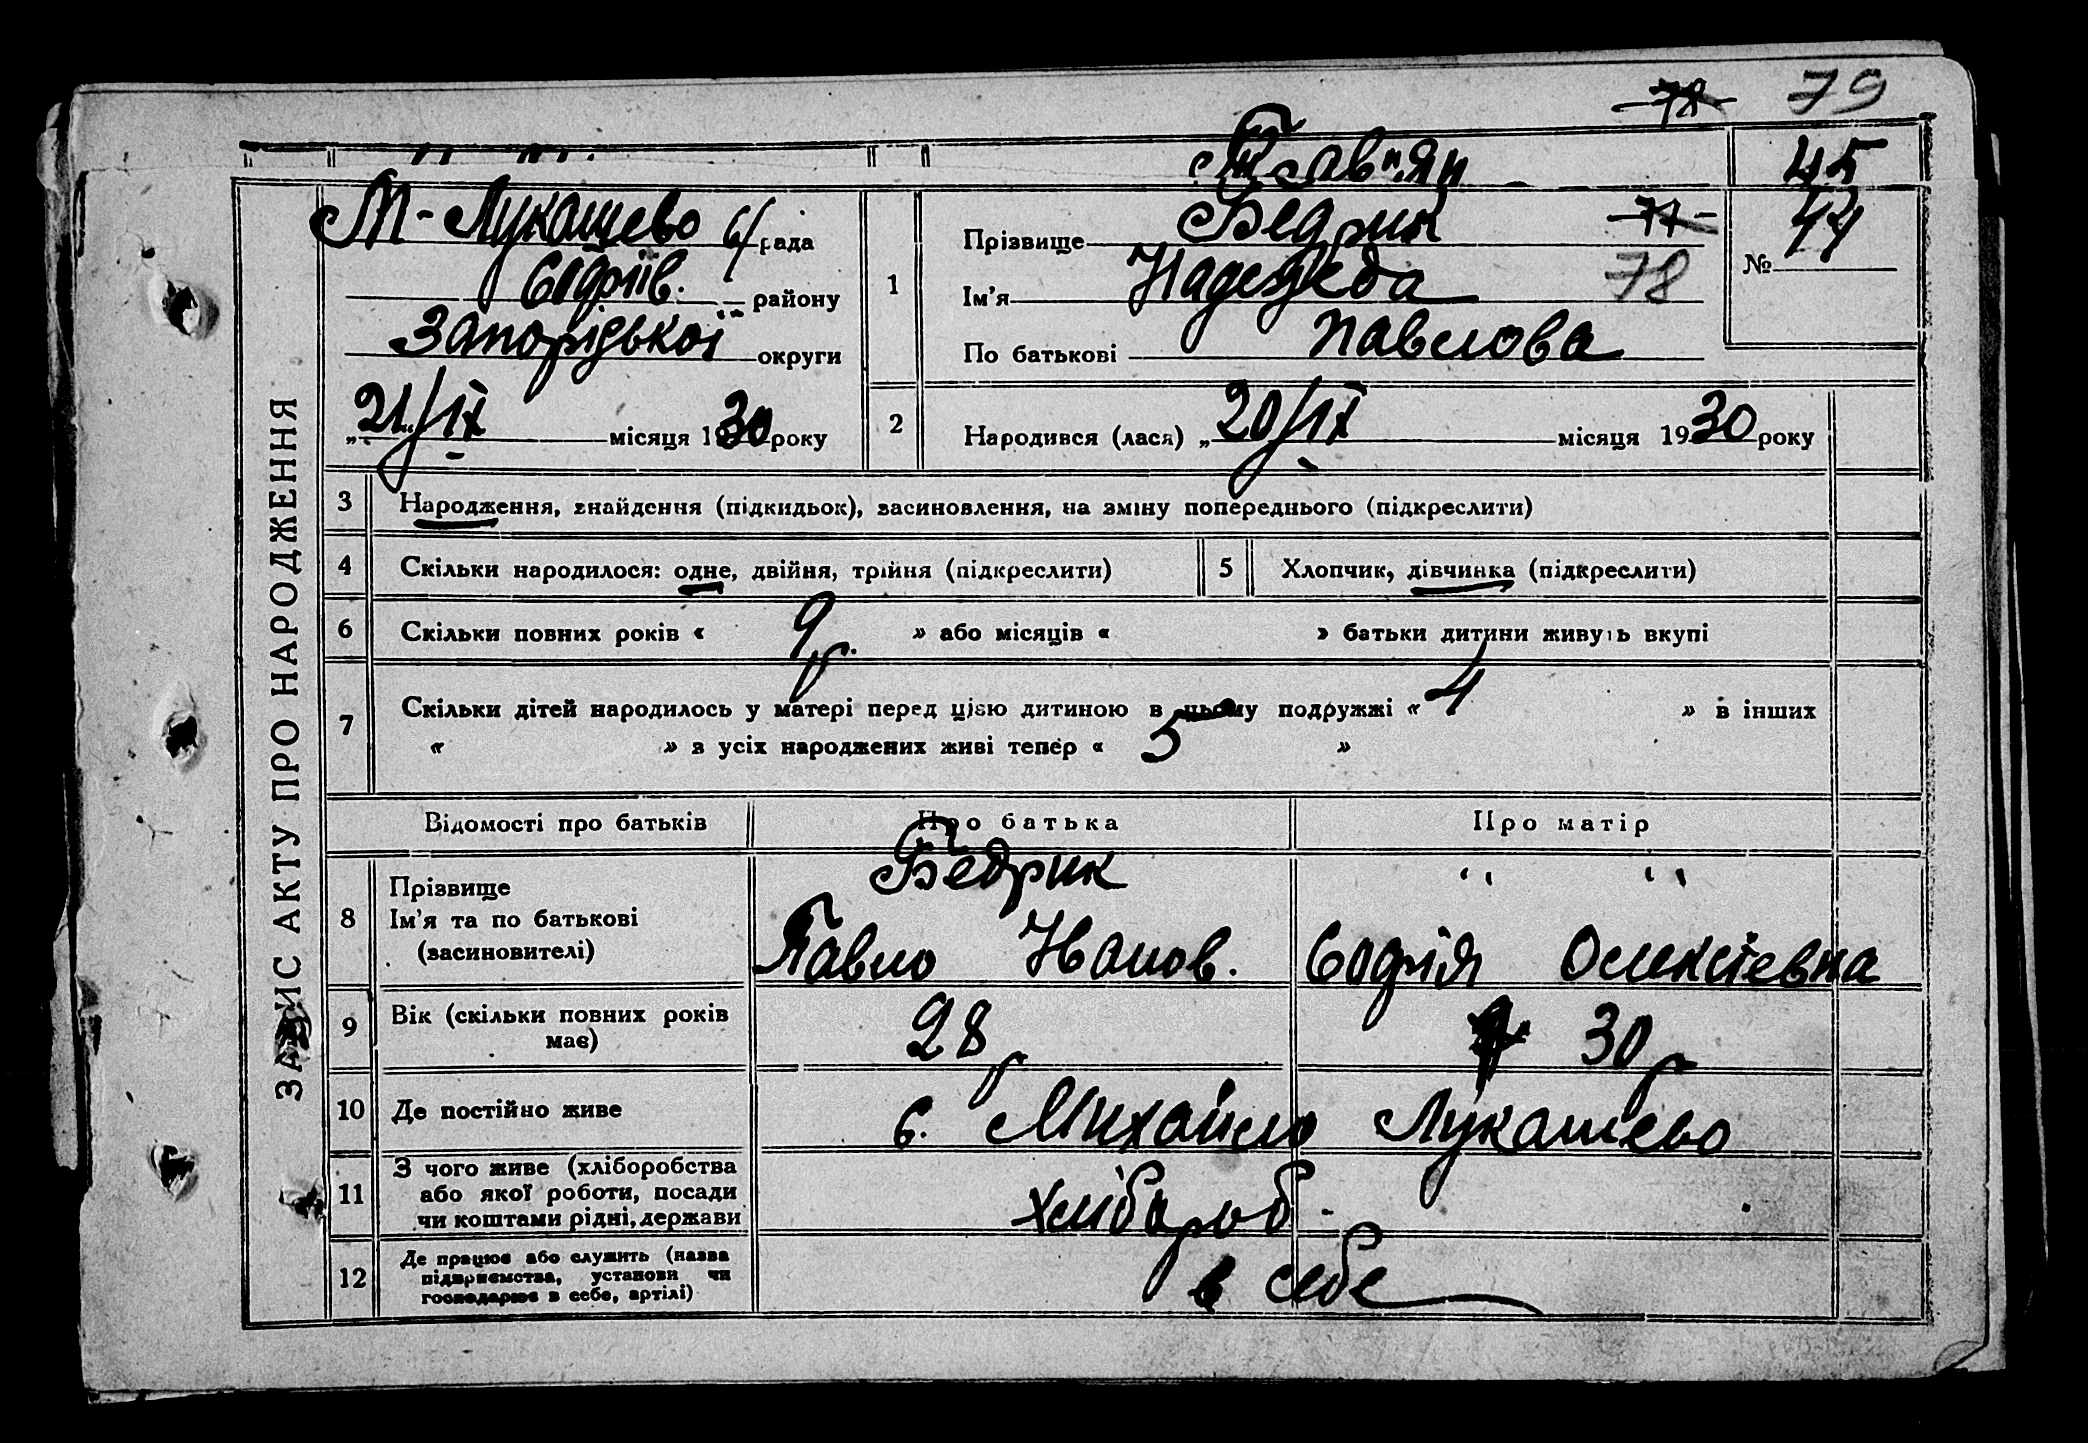 78 79
45
М-Лукашево с/рада
Софіїв. району
Запорізької округи
Прізвище Бедрик 77
№ 44
1
Ім'я Надежда 78
По батькові Павлова
„21/IX місяця 1930 року
2 Народився (лася) „20/IX місяця 1930 року
ЗАПИС АКТУ ПРО НАРОДЖЕННЯ
3 Народження, знайдення (підкидьок), засиновлення, на зміну попереднього (підкреслити)
4 Скільки народилося: одне, двійня, трійня (підкреслити) 5 Хлопчик, дівчинка (підкреслити)
6 Скільки повних років « 9 р. » або місяців « » батьки дитини живуть вкупі
7 Скільки дітей народилось у матері перед цією дитиною в цьому подружжі « 4 » в інших
« » з усіх народжених живі тепер « 5 »
Відомості про батьків Про батька Про матір
8 Прізвище Бедрик " "
Ім'я та по батькові
(засиновителі) Павло Иванов. Софія Олексієвна
9 Вік (скільки повних років
має) 28 р 30 р
10 Де постійно живе с. Михайло Лукашево
11 З чого живе (хліборобства
або якої роботи, посади
чи коштами рідні, держави хлібороб -
12 Де працює або служить (назва
підприємства, установи чи
господарює в себе, артілі) в себе